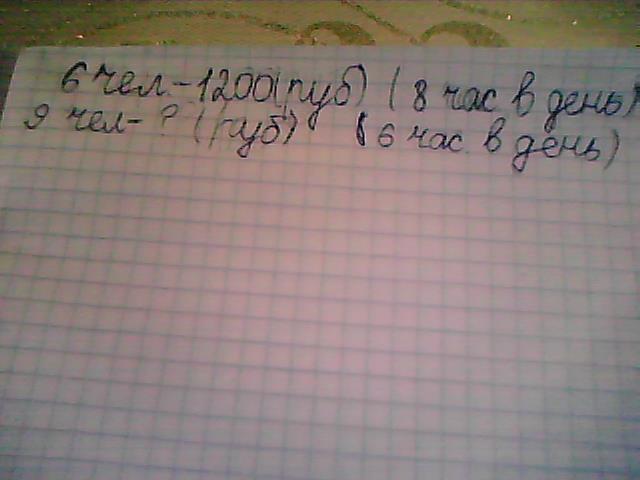 6 чел. - 1200 (руб) (8 час в день)
9 чел - ? (руб) (6 час. в день)